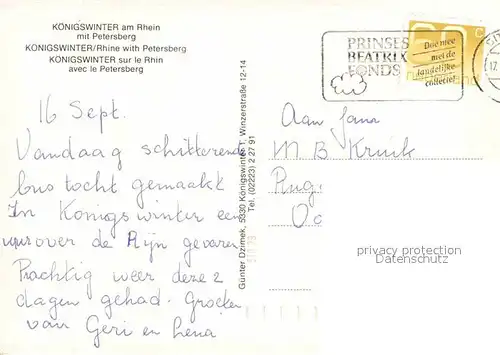 KÖNIGSWINTER am Rhein
mit Petersberg
KÖNIGSWINTER/Rhine with Petersberg
KÖNIGSWINTER sur le Rhin
avec le Petersberg
PRINSES
BEATRIX
FONDS
Doe mee
met de
landelijke
collecte!
c
17.
16 Sept.
Vandaag schitterende
bus tocht gemaakt
In Konigswinter een
uur over de Rijn gevaren
Prachtig weer deze 2
dagen gehad. Groeten
van Geri en Lena
Günter Dzimek, 5330 Königswinter 1, Winzerstraße 12-14
Tel. (02223) 2 27 91
Aan Jana
M B Kruik
privacy protection
Datenschutz